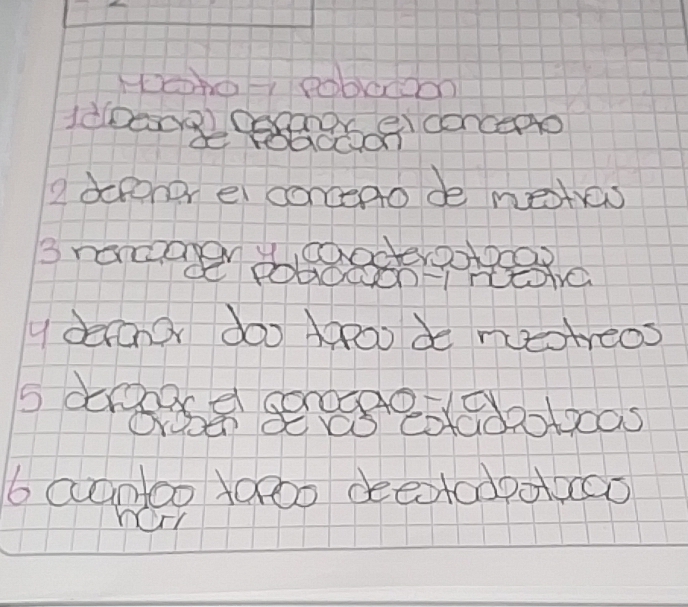 población
1 definir el concepto
de población
2 definir el concepto de muestras
3 mencionar y características
de población y muestra
4 definir dos tipos de muestreos
5 definir el concepto y el
origen de las estadísticas
6 cuantos tipos de estadísticas
hay